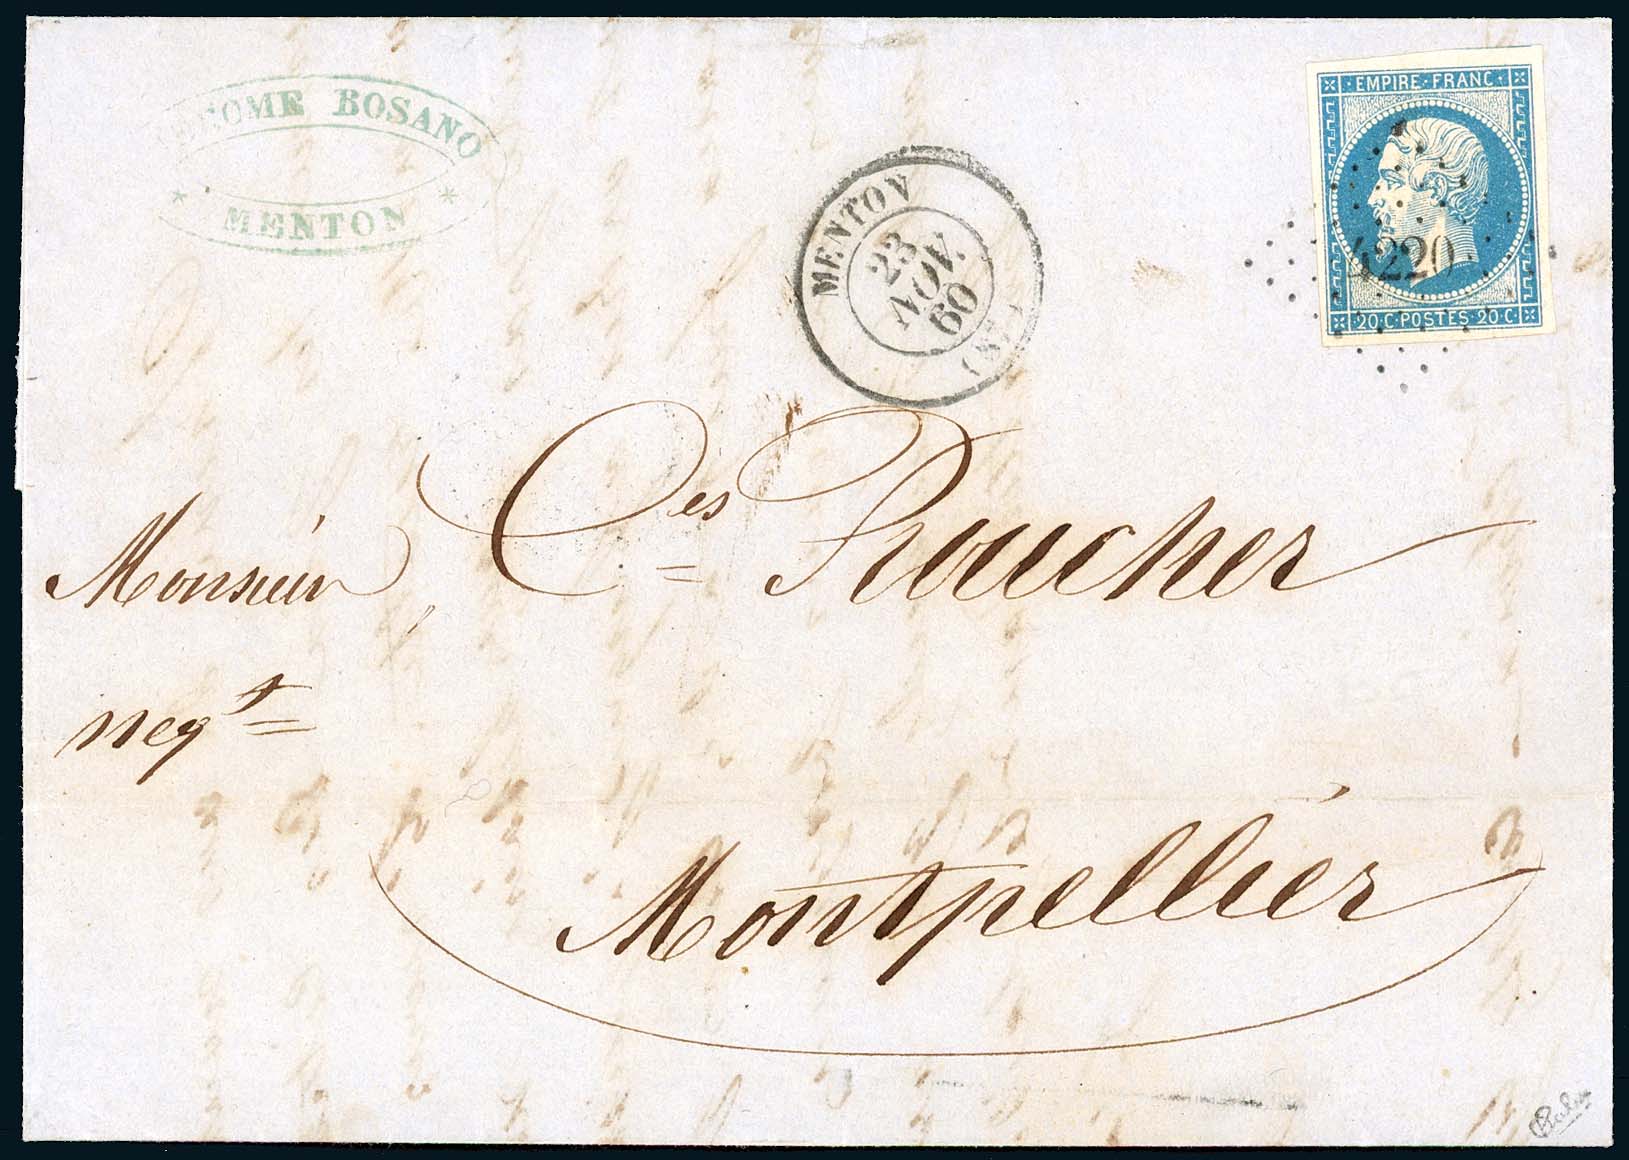 BOSANO
* MENTON *
MENTON
23
NOV.
60
(87)
EMPIRE·FRANC·
4220
20·C·POSTES·20·C
Monsieur Ces Roucher
negt
Montpellier